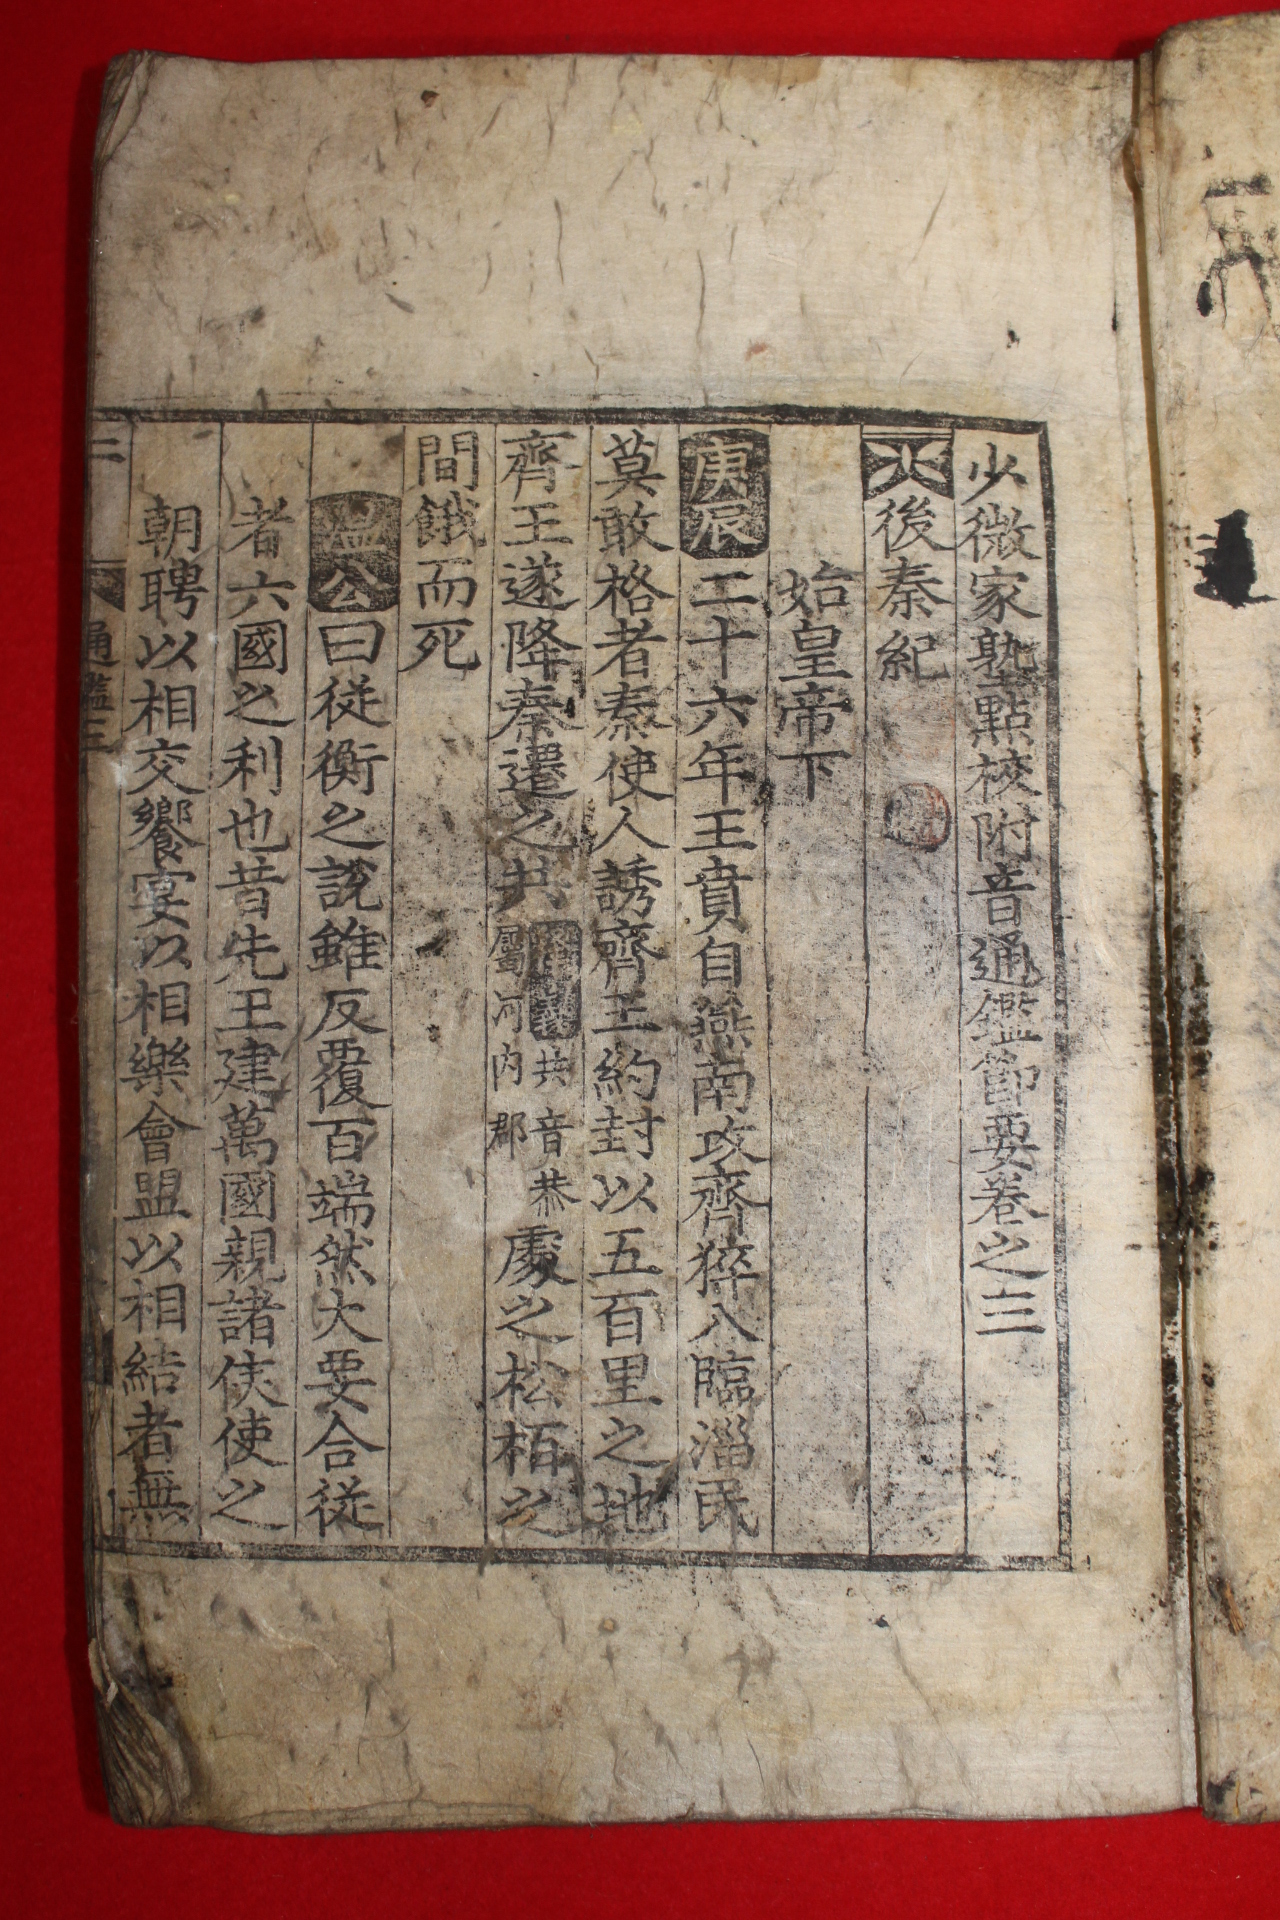 少微家塾點校附音通鑑節要卷之三
後秦紀
始皇帝下
庚辰二十六年王賁自燕南攻齊猝入臨淄民
莫敢格者秦使人誘齊王約封以五百里之地
齊王遂降秦遷之共
共音恭
屬河內郡
處之松栢之
間餓而死
溫公曰從衡之說雖反覆百端然大要合從
者六國之利也昔先王建萬國親諸侯使之
朝聘以相交饗宴以相樂會盟以相結者無
通鑑三